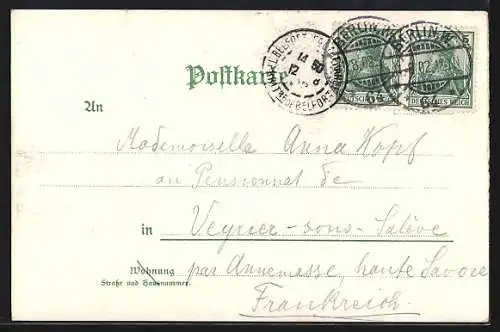 Postkarte
BERLIN.W.
BERLIN.W.
64
64
DEUTSCHES REICH
DEUTSCHES REICH
An
Mademoiselle Anna Kopf
au Pensionnat de
in Veyrier-sous-Salève
Wohnung par Annemasse, haute Savoie
Straße und Hausnummer.
Frankreich.